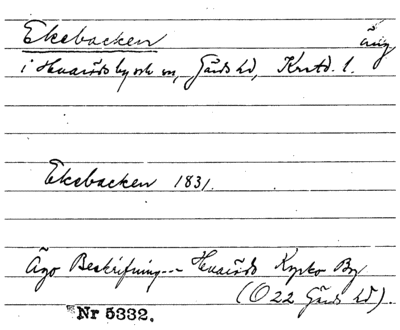 Ekebacken äng
i Hvaröds by och sn, Gärds hd, Krstd. l.
Ekebacken 1831.
Ägo Beskrifning -- Hvaröds Kyrko By
(O 22 Gärds hd).
Nr 5332.